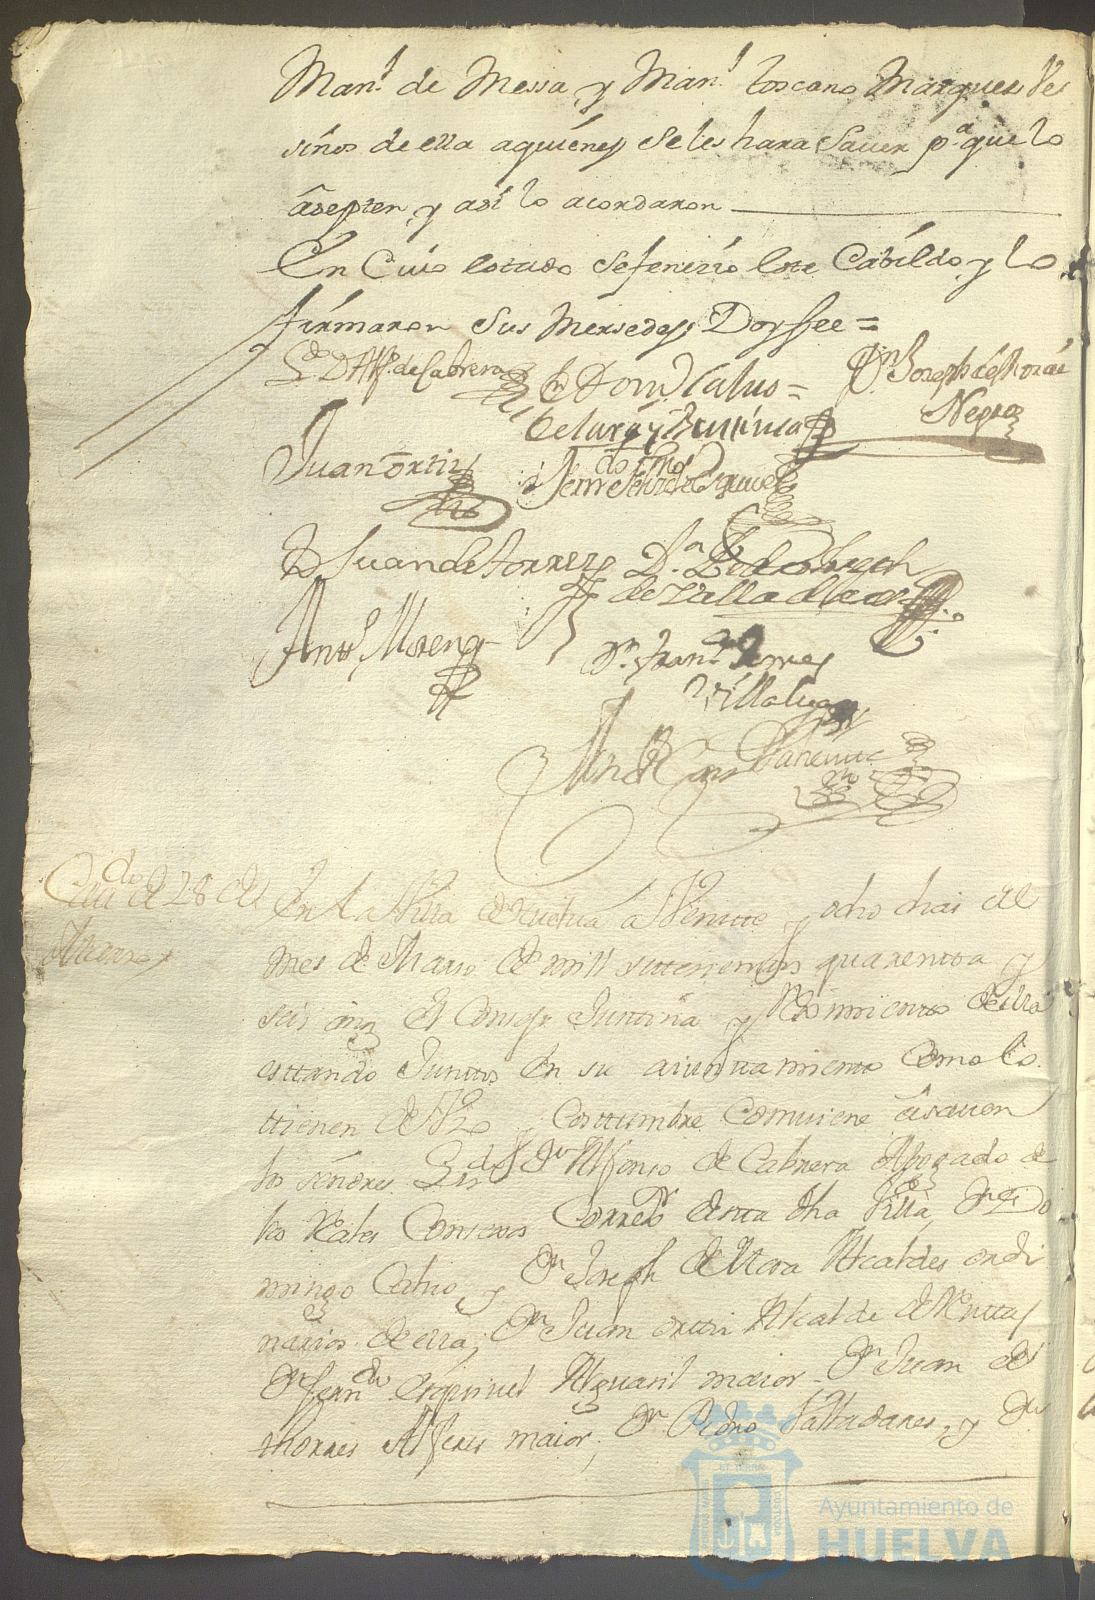 Man.l de Messa y Man.l toscano Marques Ve
sinos de ella aquienes se les hara Saver p.a que lo
asepten, y asi lo acordaron
En Cuio estado se fenesio este Cabildo y lo
firmaron Sus Mersedes Doy fee =
L.do D Alf.o de Cabrera
Dn Dom.o Calvo =
Dn Joseph de
Negro
Juan ortis
Fern.do
D Juan de torres
D.n Pedro
de Valladares
Ant.o Moreno
Dn Fran.co
Villalva
Cav.do de 28 de
Marzo
En la Villa de Huelva a Veinte y ocho dias del
mes de Marzo de mill settesientos quarenta y
seis años el Consejo Justisia y Reximiento de ella
estando Juntos en su aiuntamiento Como lo
tienen de Vso y Costtumbre Comuiene asauer
los señores Lis.do Dn Alfonso de Cabrera Abogado de
los Reales Consejos Correx.r de esta dha Villa, Dn Do
mingo Calvo, y Dn Joseph de Mora Alcaldes ordi
narios de ella; Dn Juan ortis Alcalde de
Dn Fern.do esquivel Alguasil maior - Dn Juan de
thorres Alferes maior, Dn Pedro Valladares, y Dn
Ayuntamiento de
HUELVA